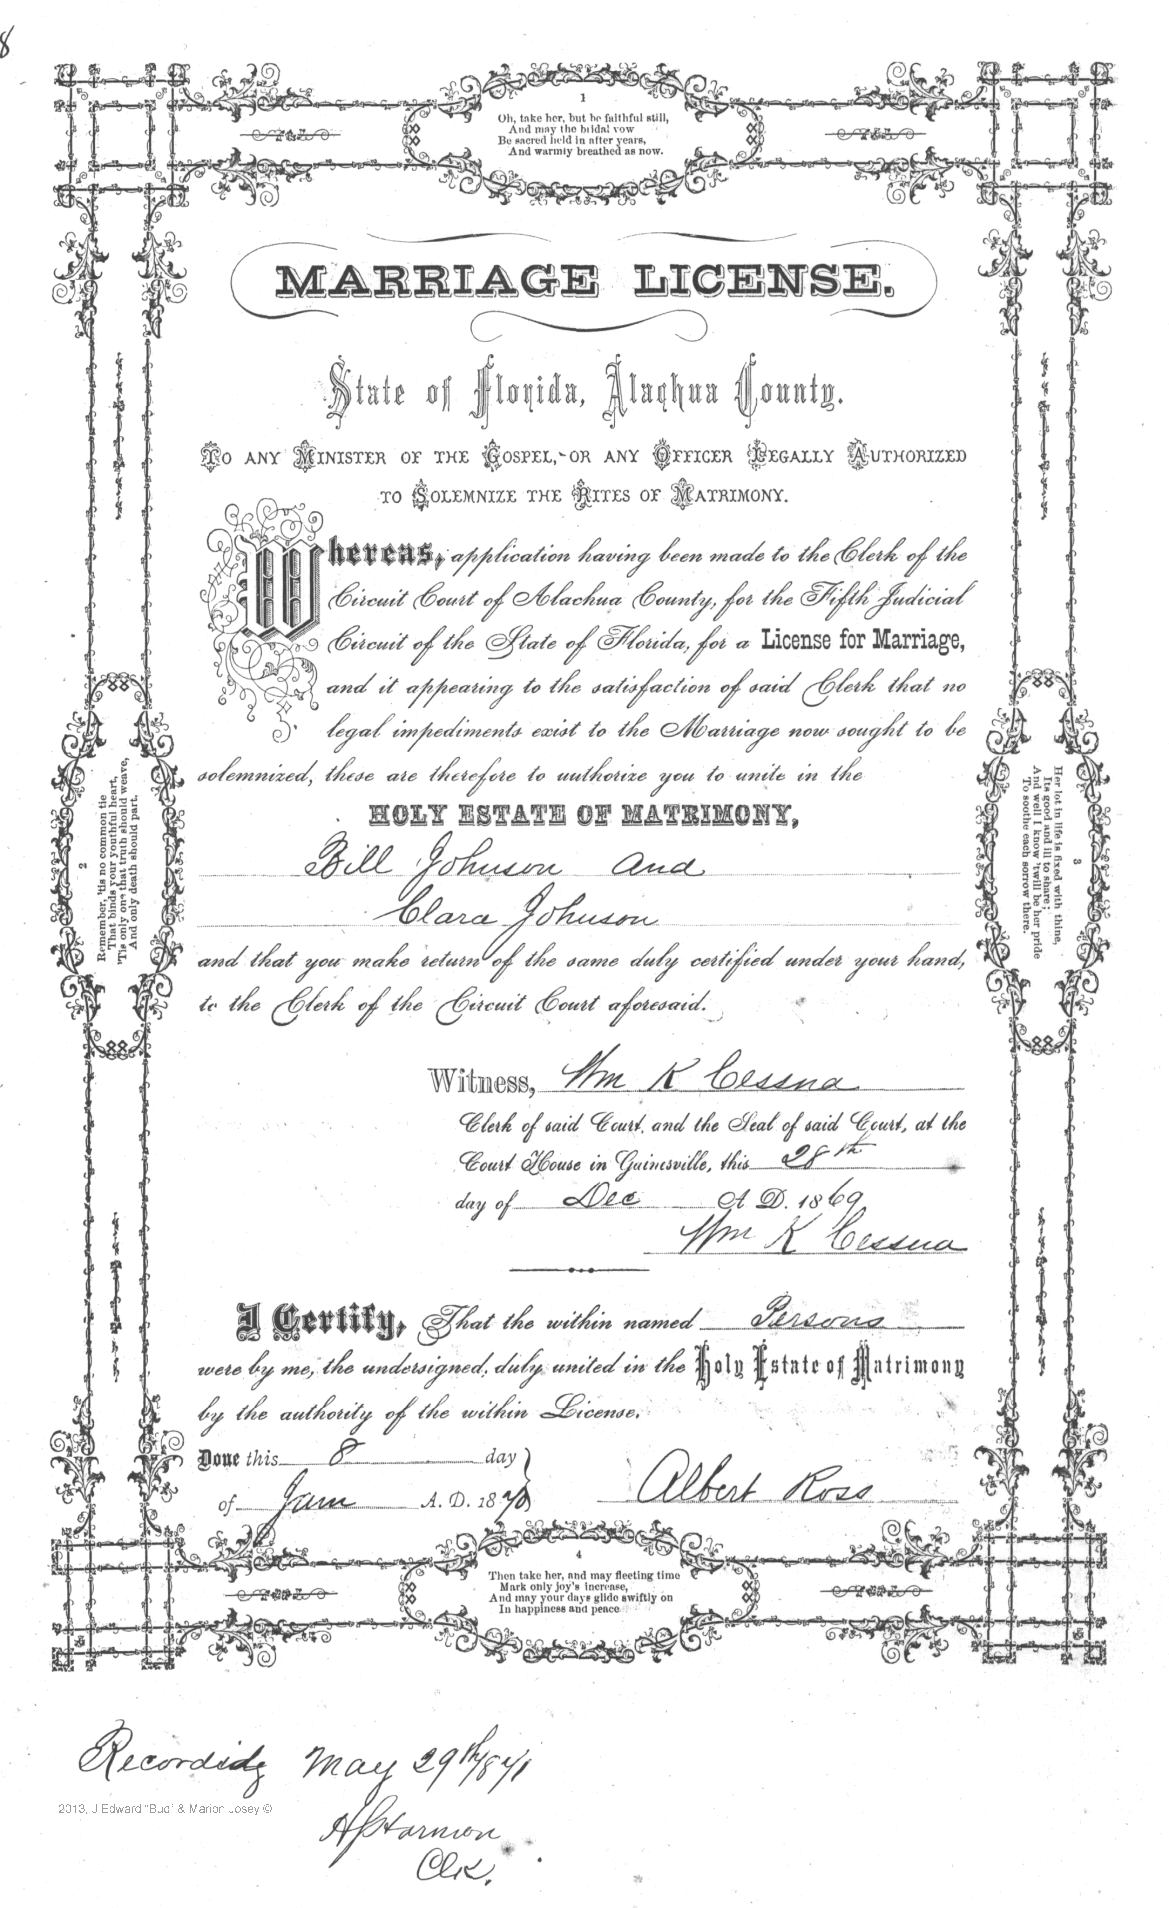 8
1
Oh, take her, but be faithful still,
And may the bridal vow
Be sacred held in after years,
And warmly breathed as now.
MARRIAGE LICENSE.
State of Florida, Alachua County.
TO ANY MINISTER OF THE GOSPEL,-OR ANY OFFICER LEGALLY AUTHORIZED
TO SOLEMNIZE THE RITES OF MATRIMONY.
Whereas, application having been made to the Clerk of the
Circuit Court of Alachua County, for the Fifth Judicial
Circuit of the State of Florida, for a License for Marriage,
and it appearing to the satisfaction of said Clerk that no
legal impediments exist to the Marriage now sought to be
solemnized, these are therefore to authorize you to unite in the
HOLY ESTATE OF MATRIMONY,
Bill Johnson and
Clara Johnson
and that you make return of the same duly certified under your hand,
to the Clerk of the Circuit Court aforesaid.
2
Remember, 'tis no common tie
That binds your youthful heart,
'Tis only one that truth should weave,
And only death should part.
3
Her lot in life is fixed with thine,
Its good and ill to share;
And well I know 'twill be her pride
To soothe each sorrow there.
Witness, Wm K Cessna
Clerk of said Court, and the Seal of said Court, at the
Court House in Gainesville, this 28th
day of Dec A D. 1869
Wm K Cessna
I Certify, That the within named Persons
were by me, the undersigned, duly united in the Holy Estate of Matrimony
by the authority of the within License.
Done this 8 day
of Jan A. D. 1870
Albert Ross
4
Then take her, and may fleeting time
Mark only joy's increase,
And may your days glide swiftly on
In happiness and peace
May 29th 1871
2013, J Edward "Bud" & Marion Josey ©
Harmon
Clk.